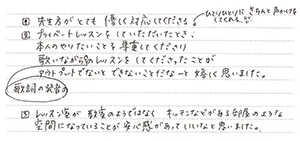 ① 先生方がとても優しく対応してくださる。
ひとりひとりにきちんと声かけをしてくれる
② プライベートレッスンをしていただいたとき、
本人のやりたいことを尊重してくださり
歌いながらのレッスンをしてくださったことが
アウトプットでないとできないことだなーと嬉しく思いました。
歌詞の発音の
③ レッスン室が教室のようではなくキッチンなどがある部屋のような
空間になっていることが安心感があっていいなと思いました。